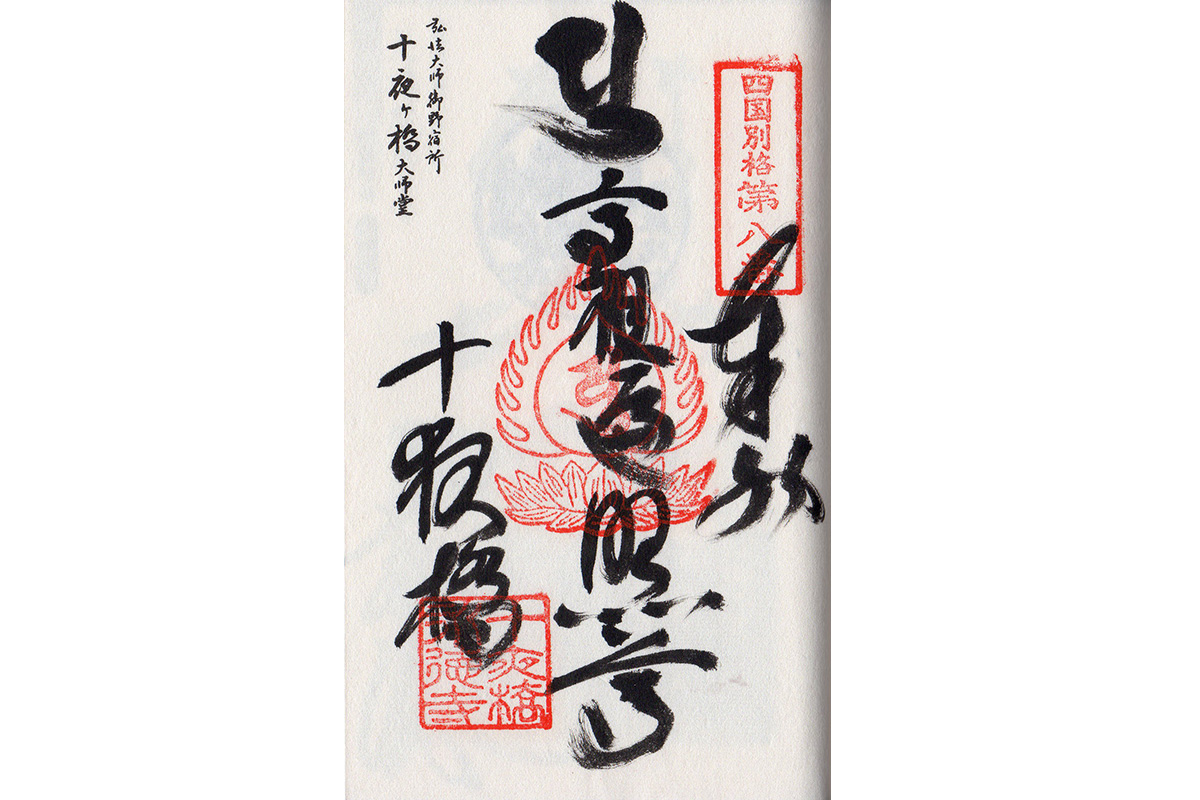 四国別格第八番
奉納
高祖遍照尊
十夜橋
弘法大師御野宿所
十夜ヶ橋大師堂
十夜橋
永徳寺